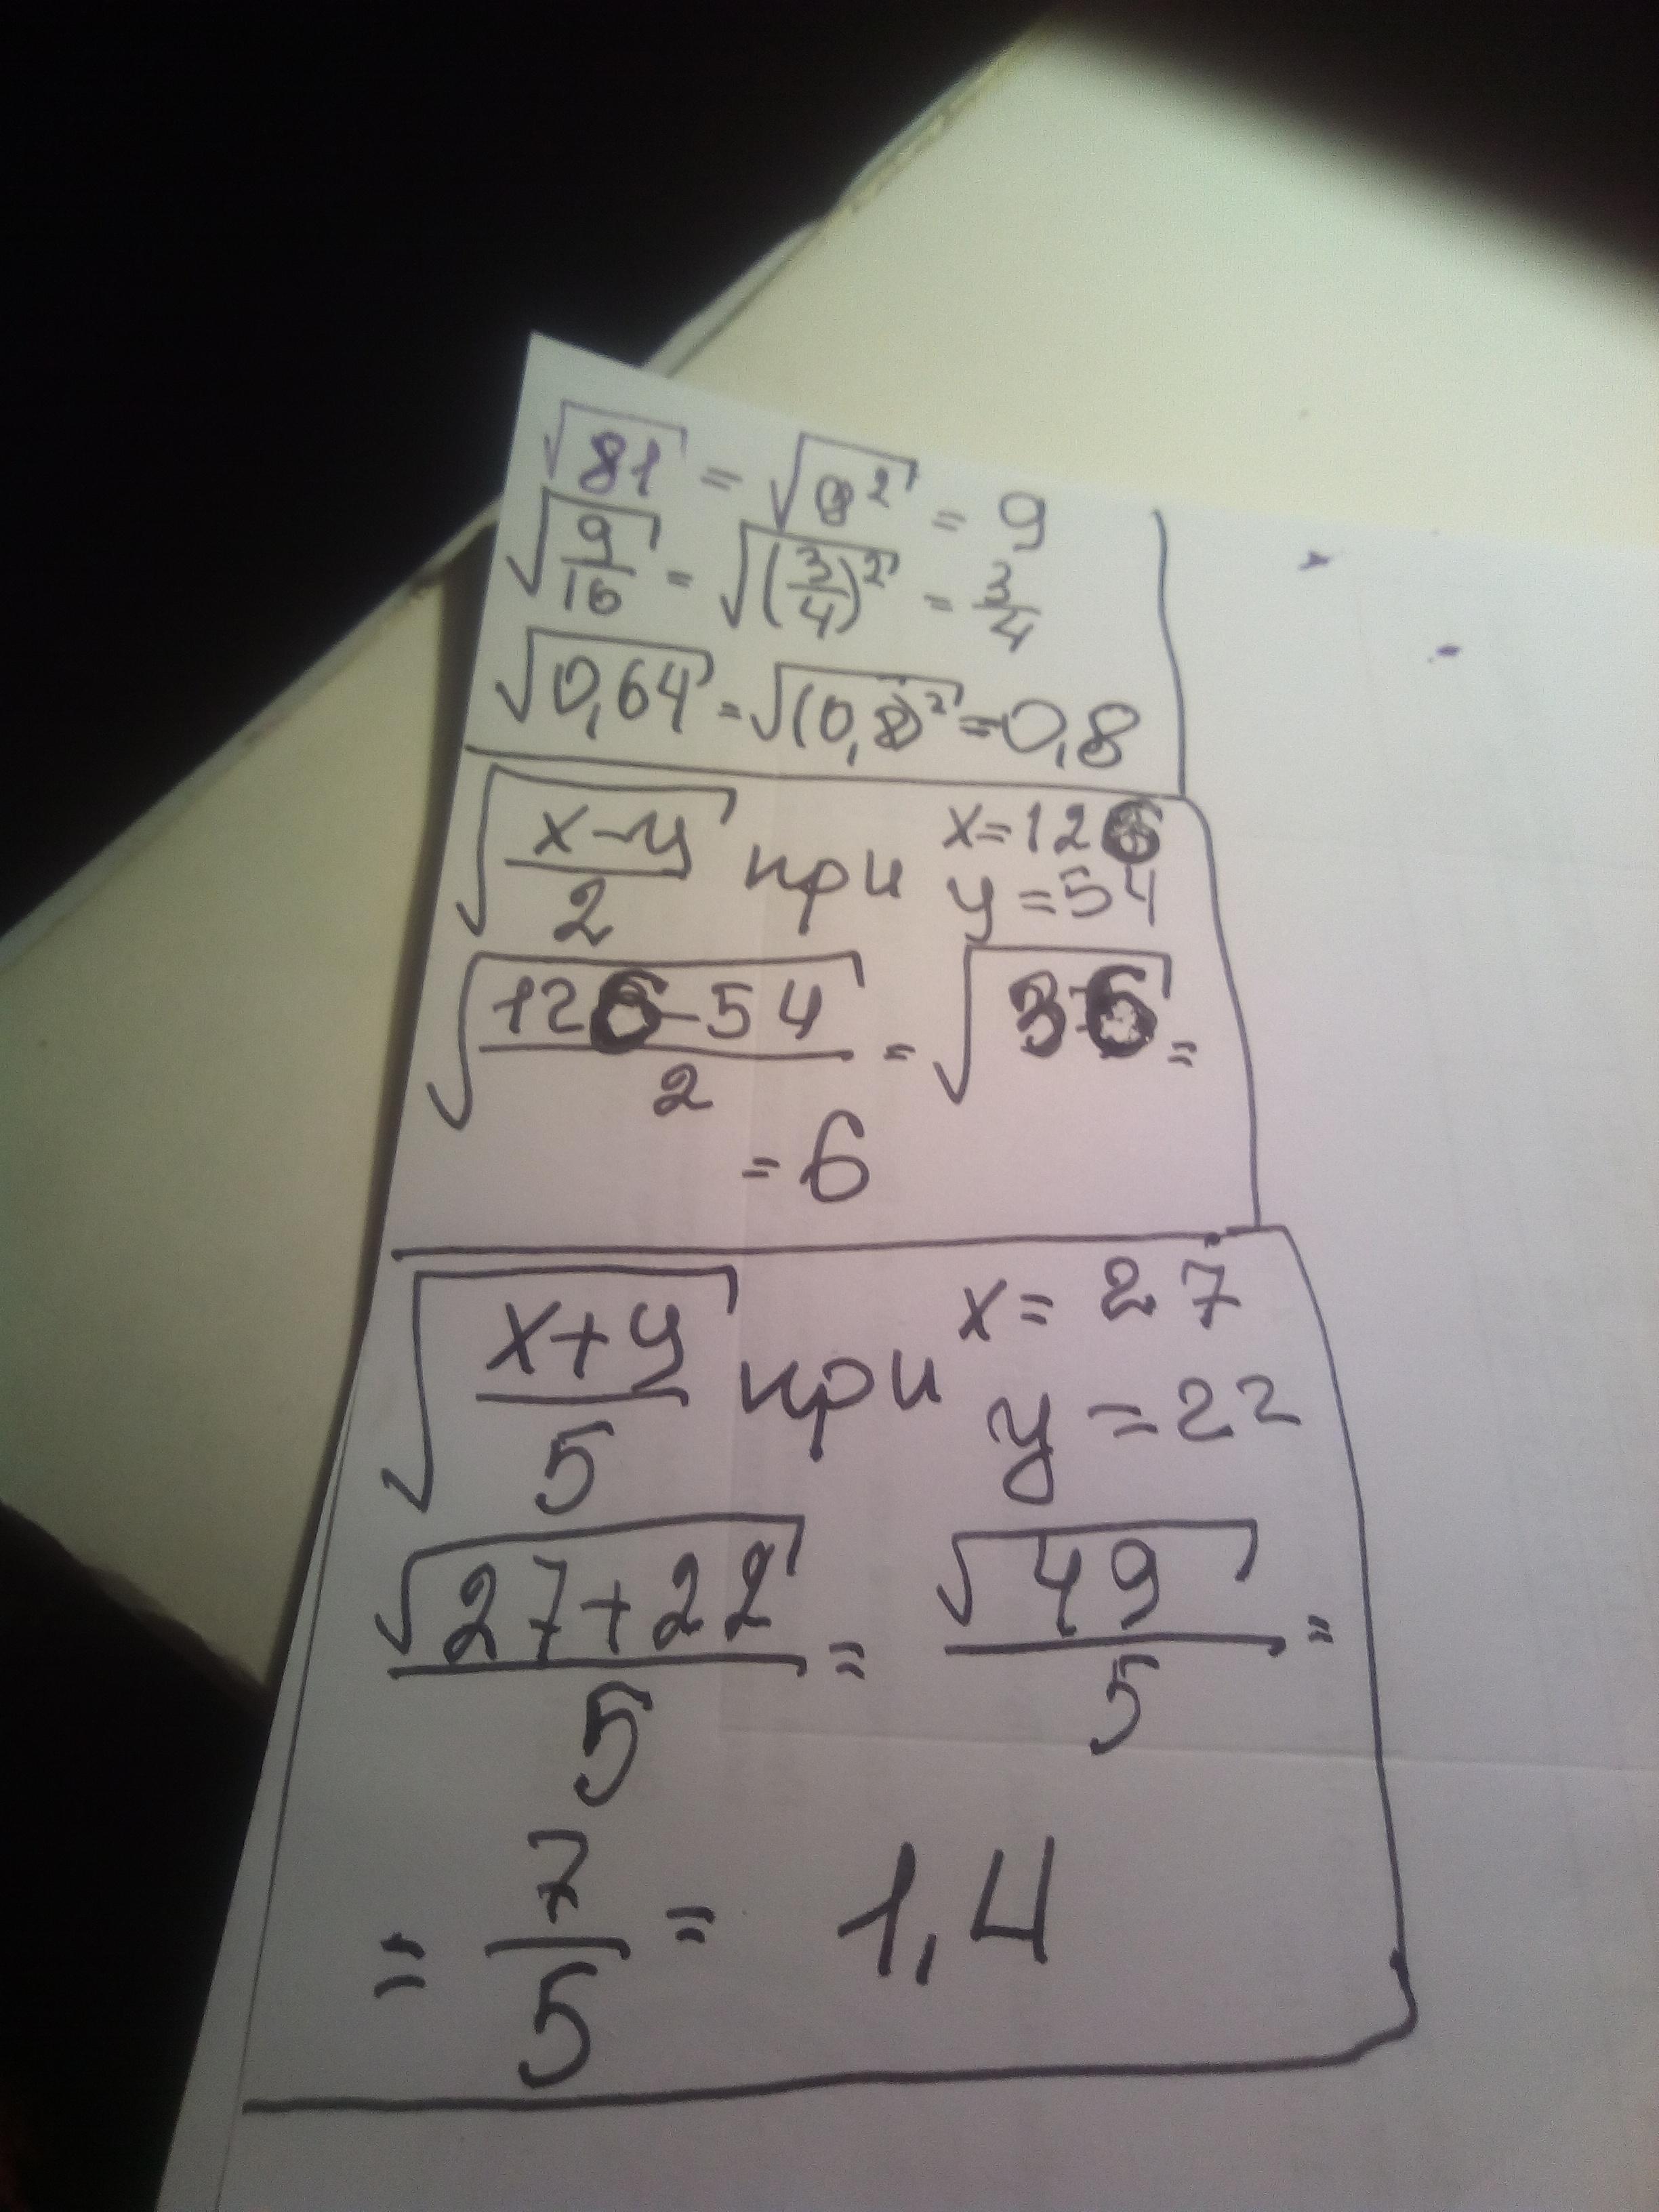 √81 = √9² = 9
√(9/16) = √(3/4)² = 3/4
√0,64 = √(0,8)² = 0,8
√((x-y)/2) при x=126
y=54
√((126-54)/2) = √36 =
= 6
√((x+y)/5) при x= 27
y =22
√(27+22)/5 = √49/5 =
= 7/5 = 1,4